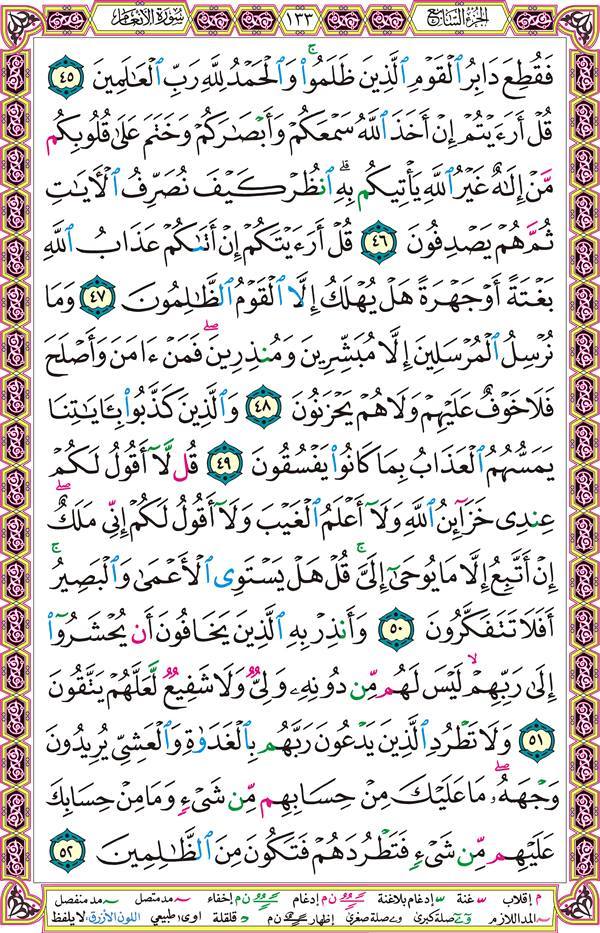 الجزء السابع
١٣٣
سورة الأنعام
فَقُطِعَ دَابِرُ ٱلْقَوْمِ ٱلَّذِينَ ظَلَمُوا۟ ۚ وَٱلْحَمْدُ لِلَّهِ رَبِّ ٱلْعَـٰلَمِينَ ٤٥
قُلْ أَرَءَيْتُمْ إِنْ أَخَذَ ٱللَّهُ سَمْعَكُمْ وَأَبْصَـٰرَكُمْ وَخَتَمَ عَلَىٰ قُلُوبِكُم
مَّنْ إِلَـٰهٌ غَيْرُ ٱللَّهِ يَأْتِيكُم بِهِ ۗ ٱنظُرْ كَيْفَ نُصَرِّفُ ٱلْـَٔايَـٰتِ
ثُمَّ هُمْ يَصْدِفُونَ ٤٦ قُلْ أَرَءَيْتَكُمْ إِنْ أَتَىٰكُمْ عَذَابُ ٱللَّهِ
بَغْتَةً أَوْ جَهْرَةً هَلْ يُهْلَكُ إِلَّا ٱلْقَوْمُ ٱلظَّـٰلِمُونَ ٤٧ وَمَا
نُرْسِلُ ٱلْمُرْسَلِينَ إِلَّا مُبَشِّرِينَ وَمُنذِرِينَ ۖ فَمَنْ ءَامَنَ وَأَصْلَحَ
فَلَا خَوْفٌ عَلَيْهِمْ وَلَا هُمْ يَحْزَنُونَ ٤٨ وَٱلَّذِينَ كَذَّبُوا۟ بِـَٔايَـٰتِنَا
يَمَسُّهُمُ ٱلْعَذَابُ بِمَا كَانُوا۟ يَفْسُقُونَ ٤٩ قُل لَّآ أَقُولُ لَكُمْ
عِندِى خَزَآئِنُ ٱللَّهِ وَلَآ أَعْلَمُ ٱلْغَيْبَ وَلَآ أَقُولُ لَكُمْ إِنِّى مَلَكٌ ۖ
إِنْ أَتَّبِعُ إِلَّا مَا يُوحَىٰٓ إِلَىَّ ۚ قُلْ هَلْ يَسْتَوِى ٱلْأَعْمَىٰ وَٱلْبَصِيرُ ۚ
أَفَلَا تَتَفَكَّرُونَ ٥٠ وَأَنذِرْ بِهِ ٱلَّذِينَ يَخَافُونَ أَن يُحْشَرُوٓا۟
إِلَىٰ رَبِّهِمْ ۙ لَيْسَ لَهُم مِّن دُونِهِۦ وَلِىٌّ وَلَا شَفِيعٌ لَّعَلَّهُمْ يَتَّقُونَ
٥١ وَلَا تَطْرُدِ ٱلَّذِينَ يَدْعُونَ رَبَّهُم بِٱلْغَدَوٰةِ وَٱلْعَشِىِّ يُرِيدُونَ
وَجْهَهُۥ ۖ مَا عَلَيْكَ مِنْ حِسَابِهِم مِّن شَىْءٍ وَمَا مِنْ حِسَابِكَ
عَلَيْهِم مِّن شَىْءٍ فَتَطْرُدَهُمْ فَتَكُونَ مِنَ ٱلظَّـٰلِمِينَ ٥٢
م إقلاب غنة إدغام بلاغنة ن م إدغام ن م إخفاء مد متصل مد منفصل
المد اللازم صلة كبرى صلة صغرى إظهار ن م قلقلة اوى طبيعي اللون الأزرق: لا يلفظ